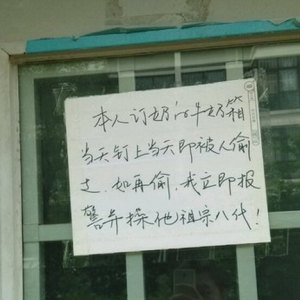 本人订奶的牛奶箱
当天钉上当天即被人偷
走，如再偷，我立即报
警并操他祖宗八代！